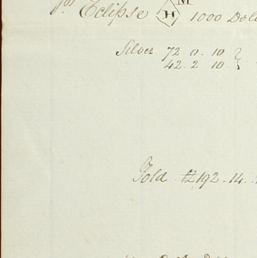 pr Eclipse M H 1000 Doll
Silver 72 .. 0 .. 10
42 . 2 . 10
Told £192 .. 14 ..